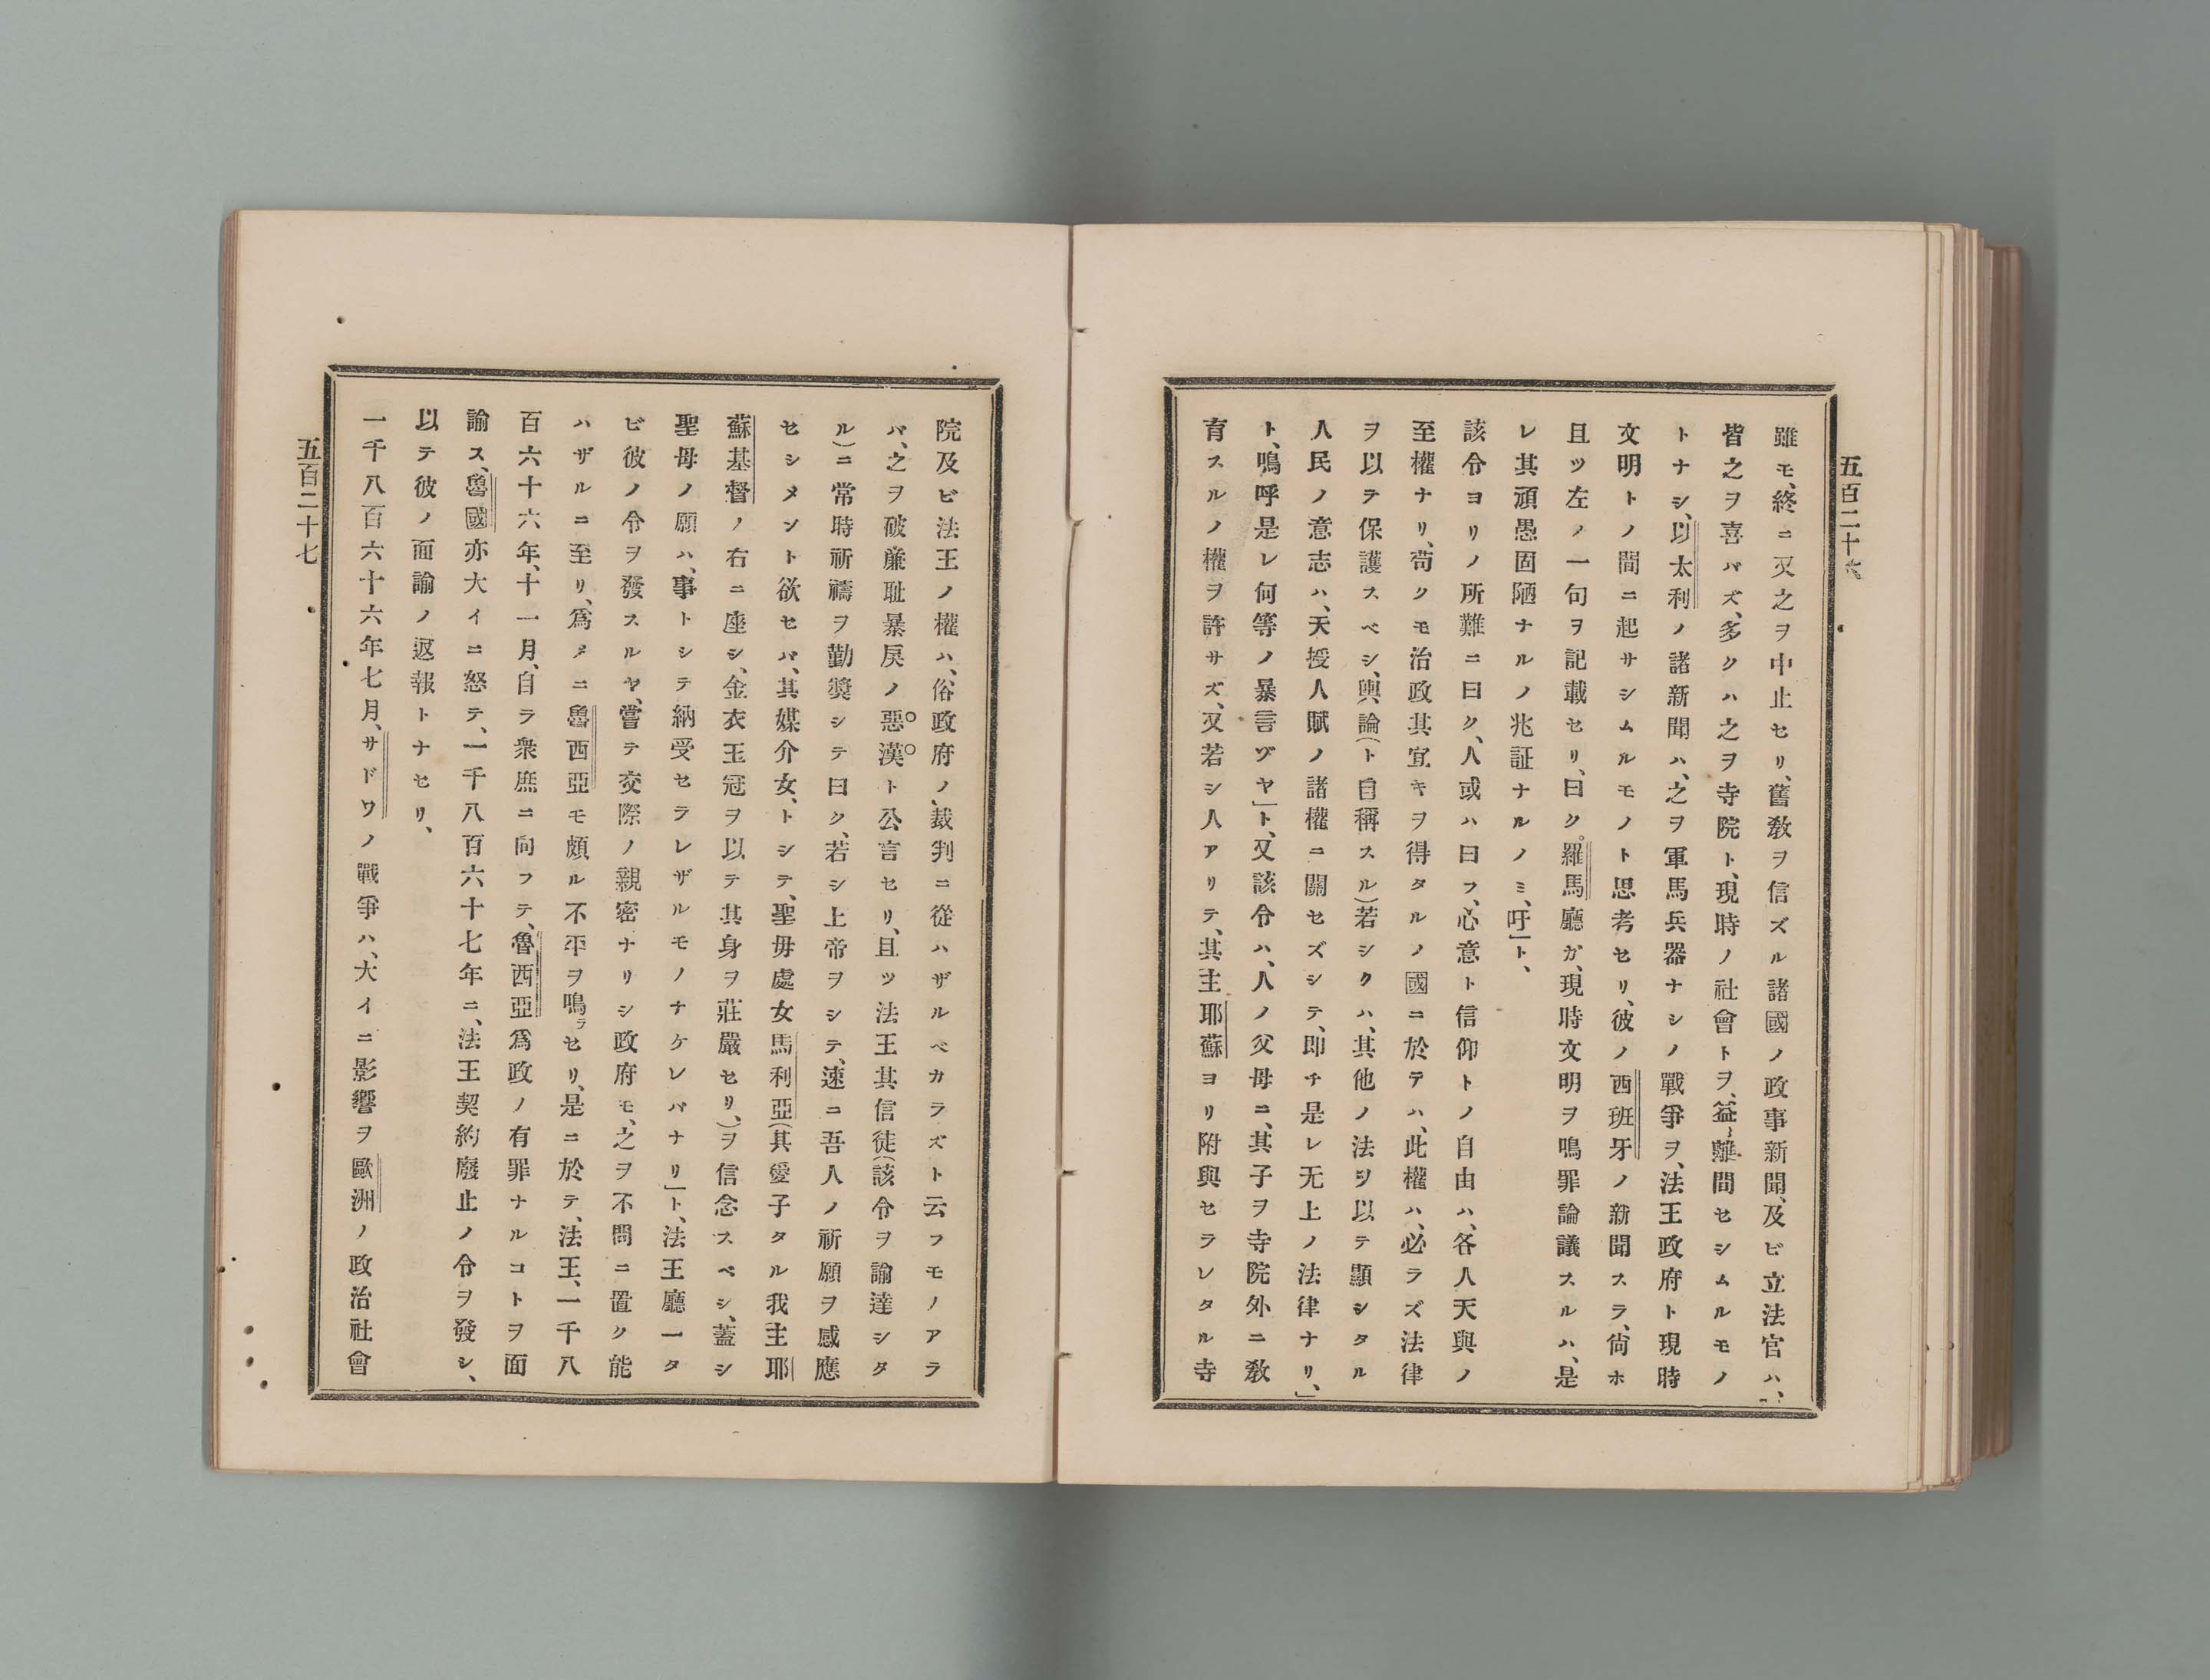 五百二十六
雖モ、終ニ又之ヲ中止セリ、舊敎ヲ信ズル諸國ノ政事新聞、及ビ立法官ハ、
皆之ヲ喜バズ、多クハ之ヲ寺院ト、現時ノ社會トヲ、益〻離間セシムルモノ
トナシ、以太利ノ諸新聞ハ、之ヲ軍馬兵器ナシノ戰爭ヲ、法王政府ト現時
文明トノ間ニ起サシムルモノト思考セリ、彼ノ西班牙ノ新聞スラ、尙ホ
且ツ左ノ一句ヲ記載セリ、曰ク。羅馬廳ガ、現時文明ヲ鳴罪論議スルハ、是
レ其頑愚固陋ナルノ兆証ナルノミ、吁」ト、
該令ヨリノ所難ニ曰ク、人或ハ曰フ、心意ト信仰トノ自由ハ、各人天與ノ
至權ナリ、苟クモ治政其宜キヲ得タルノ國ニ於テハ、此權ハ、必ラズ法律
ヲ以テ保護スベシ、輿論(ト自稱スル)若シクハ、其他ノ法ヲ以テ顯シタル
人民ノ意志ハ、天授人賦ノ諸權ニ關セズシテ、卽チ是レ无上ノ法律ナリ、」
ト、嗚呼是レ何等ノ暴言ヅヤ」ト、又該令ハ、人ノ父母ニ、其子ヲ寺院外ニ敎
育スルノ權ヲ許サズ、又若シ人アリテ、其主耶蘇ヨリ附與セラレタル寺
院及ビ法王ノ權ハ、俗政府ノ、裁判ニ從ハザルベカラズト云フモノアラ
バ、之ヲ破廉耻暴戾ノ惡漢ト公言セリ、且ツ法王其信徒(該令ヲ諭達シタ
ル)ニ常時祈禱ヲ勸奬シテ曰ク、若シ上帝ヲシテ、速ニ吾人ノ祈願ヲ感應
セシメント欲セバ、其媒介女、トシテ、聖母處女馬利亞(其愛子タル我主耶
蘇基督ノ右ニ座シ、金衣玉冠ヲ以テ其身ヲ莊嚴セリ、)ヲ信念スベシ、蓋シ
聖母ノ願ハ、事トシテ納受セラレザルモノナケレバナリ」ト、法王廳一タ
ビ彼ノ令ヲ發スルヤ、嘗テ交際ノ親密ナリシ政府モ、之ヲ不問ニ置ク能
ハザルニ至リ、爲メニ魯西亞モ頗ル不平ヲ鳴ラセリ、是ニ於テ、法王、一千八
百六十六年、十一月、自ラ衆庶ニ向フテ、魯西亞爲政ノ有罪ナルコトヲ面
諭ス、魯國亦大イニ怒テ、一千八百六十七年ニ、法王契約廢止ノ令ヲ發シ、
以テ彼ノ面諭ノ返報トナセリ、
一千八百六十六年七月、サドワノ戰爭ハ、大イニ影響ヲ歐洲ノ政治社會
五百二十七